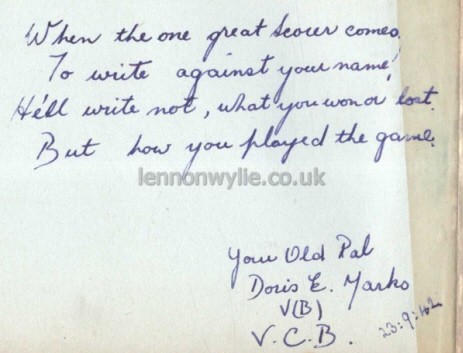 When the one great Scorer comes,
To write against your name,
He'll write not, what you won or lost.
But how you played the game.
lennonwylie.co.uk
Your Old Pal
Doris E. Marks
V(B)
V.C.B.
23:9:42